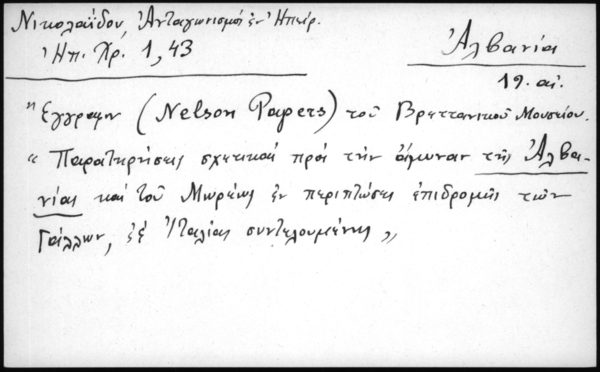 Νικολαΐδου, Ἀνταγωνισμοί ἐν Ἠπείρ.
Ἠπ. Χρ. 1, 43
Ἀλβανία
19. αἰ.
Ἔγγραφον (Nelson Papers) τοῦ Βρεττανικοῦ Μουσείου.
« Παρατηρήσεις σχετικαί πρός τήν ἄμυναν τῆς Ἀλβα-
νίας καί τοῦ Μωρέως ἐν περιπτώσει ἐπιδρομῆς τῶν
Γάλλων, ἐξ Ἰταλίας συντελουμένης »